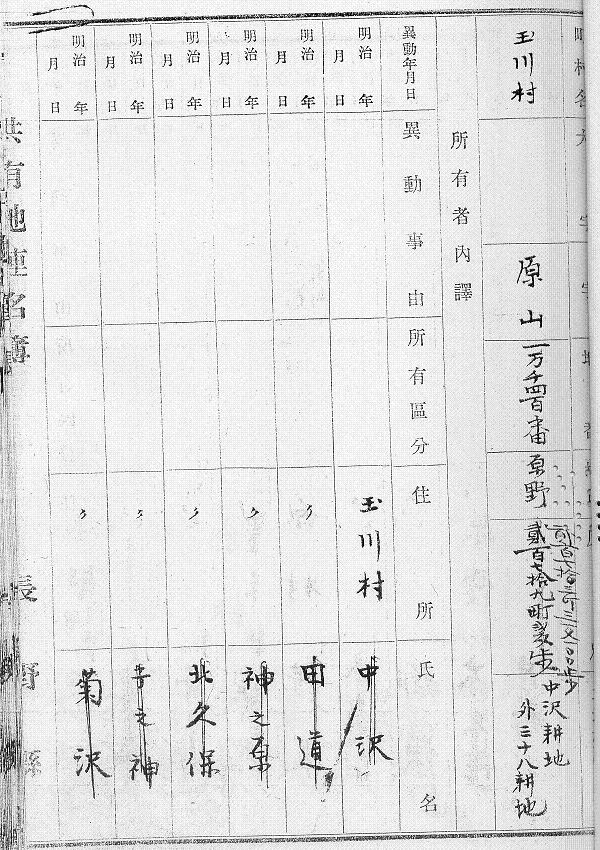 町村名
大字
字
地番
玉川村
原山
一万千四百番
原野
貳百七拾九町
中沢耕地
外三十八耕地
所有者內譯
異動年月日
異動事由
所有區分
住所
氏名
明治 年 月 日
玉川村
中沢
明治 年 月 日
〃
田道
明治 年 月 日
〃
神之原
明治 年 月 日
〃
北久保
明治 年 月 日
〃
子之神
明治 年 月 日
〃
菊沢
共有地連名簿
長野縣